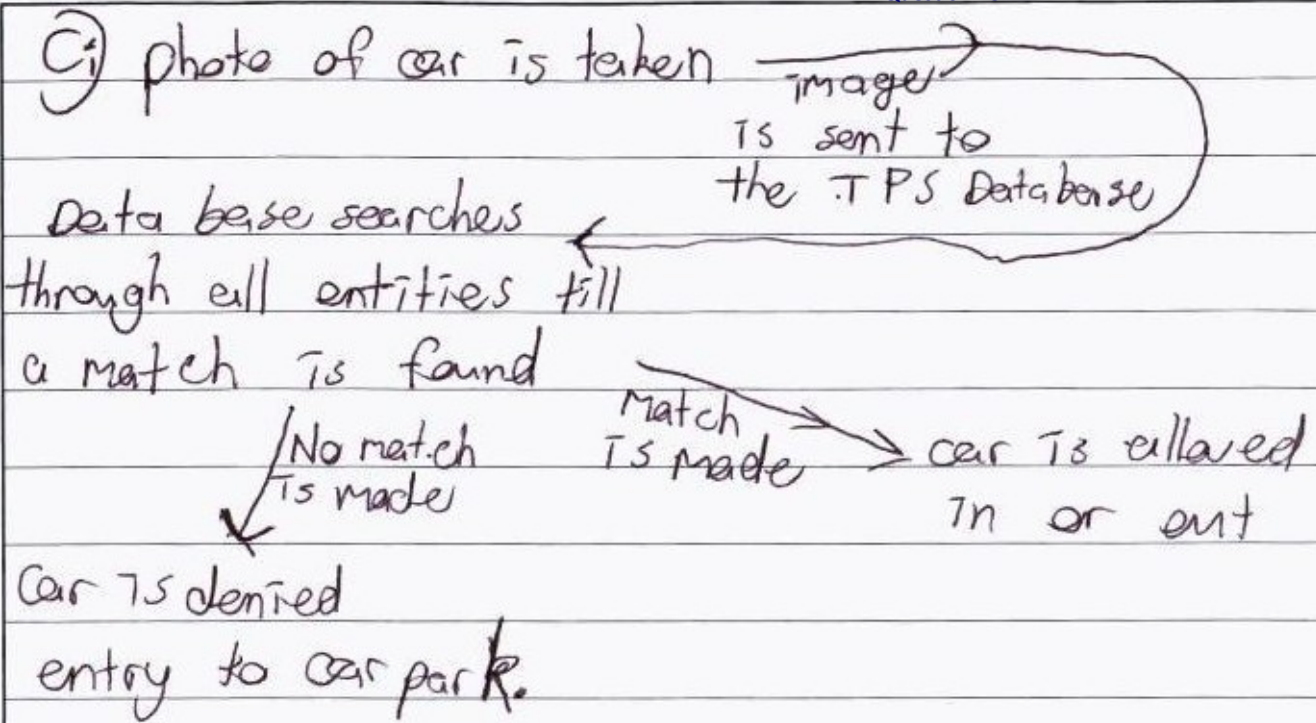 Ci) photo of car is taken
image
is sent to
the TPS Database
Data base searches
through all entities till
a match is found
No match
is made
Match
is made
car is allowed
in or out
Car is denied
entry to car park.